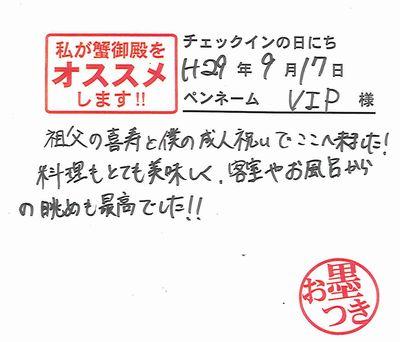 私が蟹御殿を
オススメ
します!!
チェックインの日にち
H29年9月17日
ペンネーム VIP 様
祖父の喜寿と僕の成人祝いでここへ来ました!
料理もとても美味しく、客室やお風呂から
の眺めも最高でした!!
お墨つき